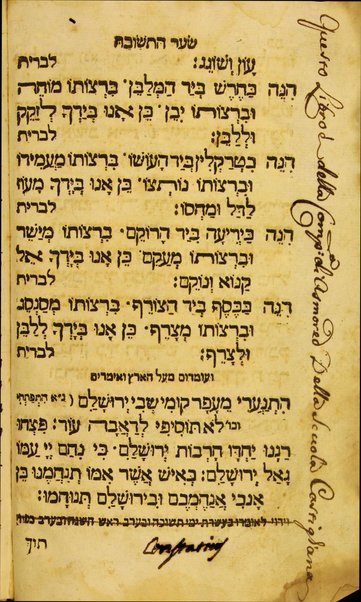 שער התשובה
עון וְשׁוֹגֵג: לברית
הִנֵּה כַּחֶרֶשׂ בְּיַד הַמְלַבֵּן. בִּרְצוֹתוֹ מוֹחֶה
וּבִרְצוֹתוֹ יִבֶן. כֵּן אָנוּ בְיָדְךָ לְזַקֵּק
וּלְלַבֵּן: לברית
הִנֵּה כִּטְרַקְלִין בְּיַד הָעוֹשׂוֹ. בִּרְצוֹתוֹ מַעֲמִידוֹ
וּבִרְצוֹתוֹ נוֹתְצוֹ. כֵּן אָנוּ בְיָדְךָ מָעוֹז
לַדַּל וּמַחְסוֹ: לברית
הִנֵּה כַּיְרִיעָה בְּיַד הָרוֹקֵם. בִּרְצוֹתוֹ מְיַשֵּׁר
וּבִרְצוֹתוֹ מְעַקֵּם. כֵּן אָנוּ בְיָדְךָ אֵל
קַנּוֹא וְנוֹקֵם: לברית
הִנֵּה כַּכֶּסֶף בְּיַד הַצּוֹרֵף. בִּרְצוֹתוֹ מְסַגְסֵג
וּבִרְצוֹתוֹ מְצָרֵף. כֵּן אָנוּ בְיָדְךָ לְלַבֵּן
וּלְצָרֵף: לברית
ועומדים מעל הארץ ואומרים
הִתְנַעֲרִי מֵעָפָר קוּמִי שְּׁבִי יְרוּשָׁלִָם (נ״א הִתְפַּתְּחִי
וכו׳ לֹא תוֹסִיפִי לְדַאֲבָה עוֹד׃ פִּצְחוּ
רַנְּנוּ יַחְדָּו חָרְבוֹת יְרוּשָׁלִָם. כִּי נִחַם יְיָ עַמּוֹ
גָּאַל יְרוּשָׁלִָם: כְּאִישׁ אֲשֶׁר אִמּוֹ תְּנַחֲמֶנּוּ כֵּן
אָנֹכִי אֲנַחֶמְכֶם וּבִירוּשָׁלִַם תְּנוּחָמוּ:
תיך
Questo Libro è della Comp.a di Asmored Della Scuola Castigliana